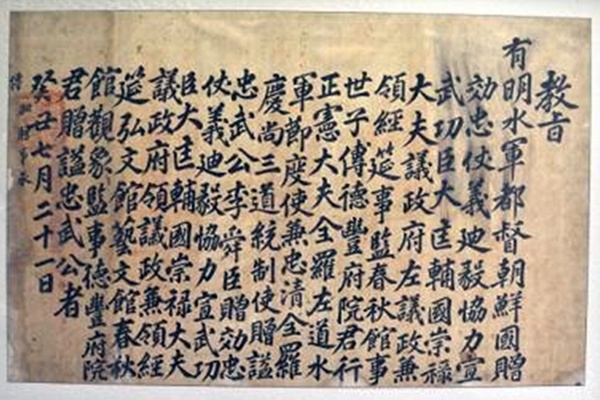 教旨
有明水軍都督朝鮮國贈
効忠仗義迪毅協力宣
武功臣大匡輔國崇禄
大夫議政府左議政兼
領經筵事監春秋館事
世子傅德豊府院君行
正憲大夫全羅左道水
軍節度使兼忠清全羅
慶尚三道統制使贈謚
忠武公李舜臣贈効忠
仗義迪毅協力宣武功
臣大匡輔國崇禄大夫
議政府領議政兼領經
筵弘文館藝文館春秋
館觀象監事德豊府院
君贈謚忠武公者
癸丑七月二十一日